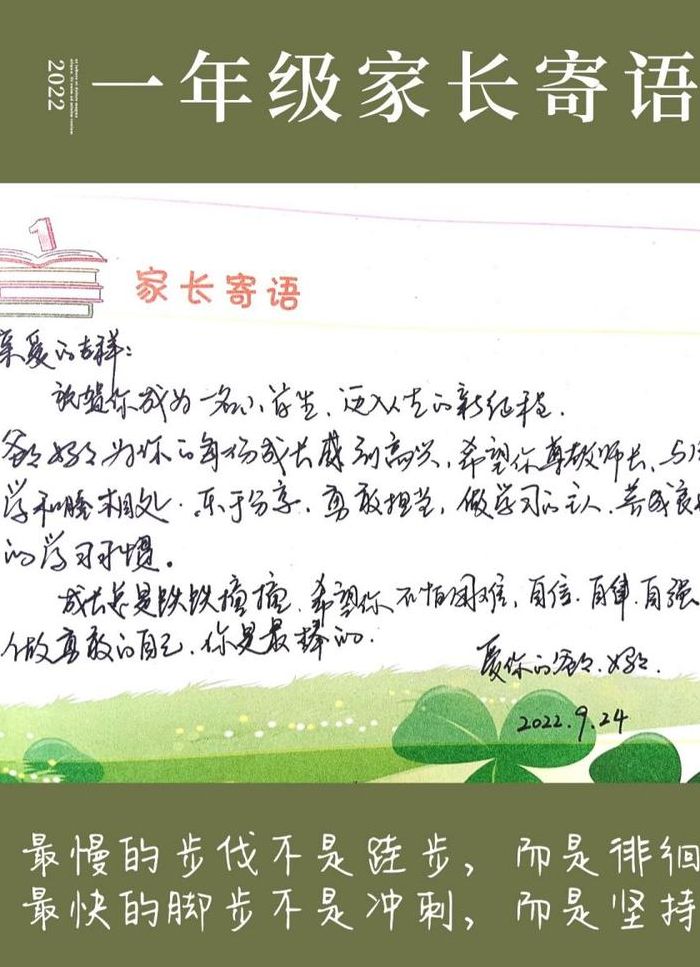 2022
一年级家长寄语
1
家长寄语
亲爱的吉祥：
祝贺你成为一名小学生，迈入人生的新征程．
爸爸妈妈为你的每份成长感到高兴，希望你尊敬师长、与
学和睦相处．乐于分享，勇敢担当，做学习的主人，养成良
的学习习惯。
成长总是跌跌撞撞，希望你不怕困难，自信．自律．自强
做勇敢的自己．你是最棒的．
爱你的爸爸．妈妈．
2022.9.24
最慢的步伐不是跬步，而是徘徊
最快的脚步不是冲刺，而是坚持